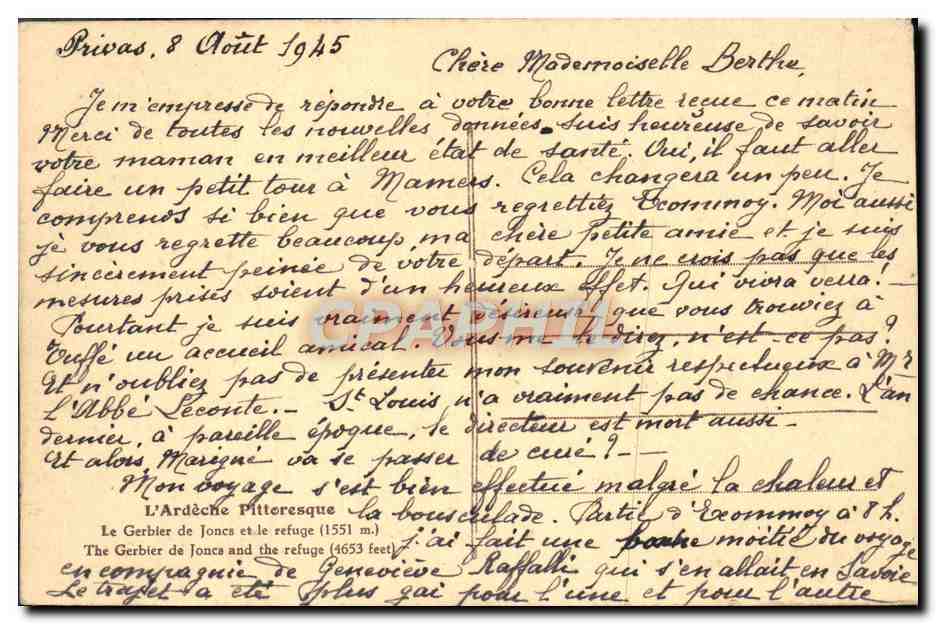 Privas, 8 Août 1945
Chère Mademoiselle Berthe,
Je m'empresse de répondre à votre bonne lettre reçue ce matin
Merci de toutes les nouvelles données. Suis heureuse de savoir
votre maman en meilleur état de santé. Oui, il faut aller
faire un petit tour à Mamers. Cela changera un peu. Je
comprends si bien que vous regrettiez Ecommoy. Moi aussi
je vous regrette beaucoup, ma chère petite amie et je suis
sincèrement peinée de votre départ. Je ne crois pas que les
mesures prises soient d'un heureux effet. Qui vivra verra! -
Pourtant je suis vraiment désireuse que vous trouviez à
Tuffé un accueil amical. Vous me le direz, n'est-ce pas?
Et n'oubliez pas de présenter mon souvenir respectueux à Mr
l'Abbé Leconte. - St Louis n'a vraiment pas de chance. L'an
dernier, à pareille époque, le directeur est mort aussi -
Et alors, Marigné va se passer de curé? - -
Mon voyage s'est bien effectué malgré la chaleur et
L'Ardèche Pittoresque la bousculade. Partie d'Ecommoy à 8 h.
Le Gerbier de Joncs et le refuge (1551 m.)
The Gerbier de Joncs and the refuge (4653 feet) j'ai fait une moitié du voyage
en compagnie de Geneviève Raffalli qui s'en allait en Savoie
Le trajet a été plus gai pour l'une et pour l'autre
CPAPHIL